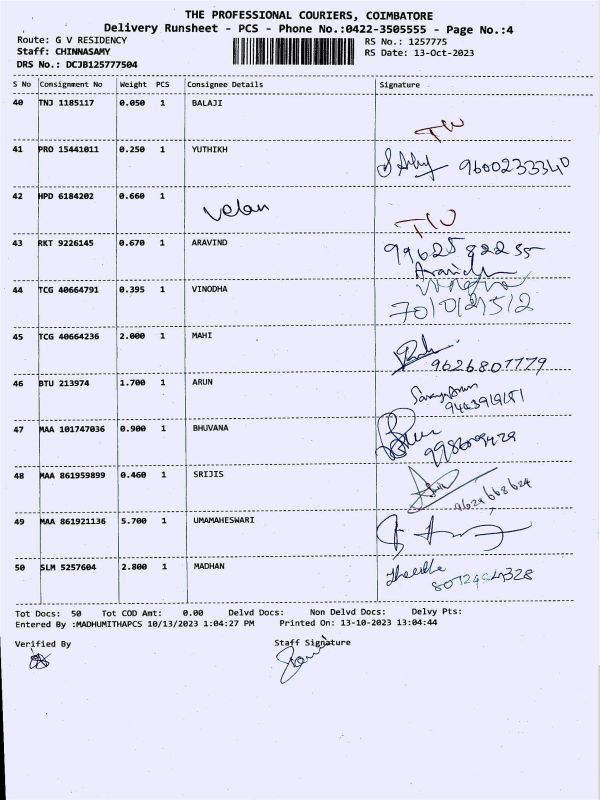 THE PROFESSIONAL COURIERS, COIMBATORE
Delivery Runsheet - PCS - Phone No.:0422-3505555 - Page No.:4
Route: G V RESIDENCY RS No.: 1257775
Staff: CHINNASAMY RS Date: 13-Oct-2023
DRS No.: DCJB125777504
S No Consignment No Weight PCS Consignee Details Signature
40 TNJ 1185117 0.050 1 BALAJI
41 PRO 15441011 0.250 1 YUTHIKH
9600233340
42 HPD 6184202 0.660 1
Velan
43 RKT 9226145 0.670 1 ARAVIND
44 TCG 40664791 0.395 1 VINODHA
45 TCG 40664236 2.000 1 MAHI
9626807779
46 BTU 213974 1.700 1 ARUN
47 MAA 101747036 0.900 1 BHUVANA
48 MAA 861959899 0.460 1 SRIJIS
9629668624
49 MAA 861921136 5.700 1 UMAMAHESWARI
50 SLM 5257604 2.800 1 MADHAN
Tot Docs: 50 Tot COD Amt: 0.00 Delvd Docs: Non Delvd Docs: Delvy Pts:
Entered By :MADHUMITHAPCS 10/13/2023 1:04:27 PM Printed On: 13-10-2023 13:04:44
Verified By Staff Signature